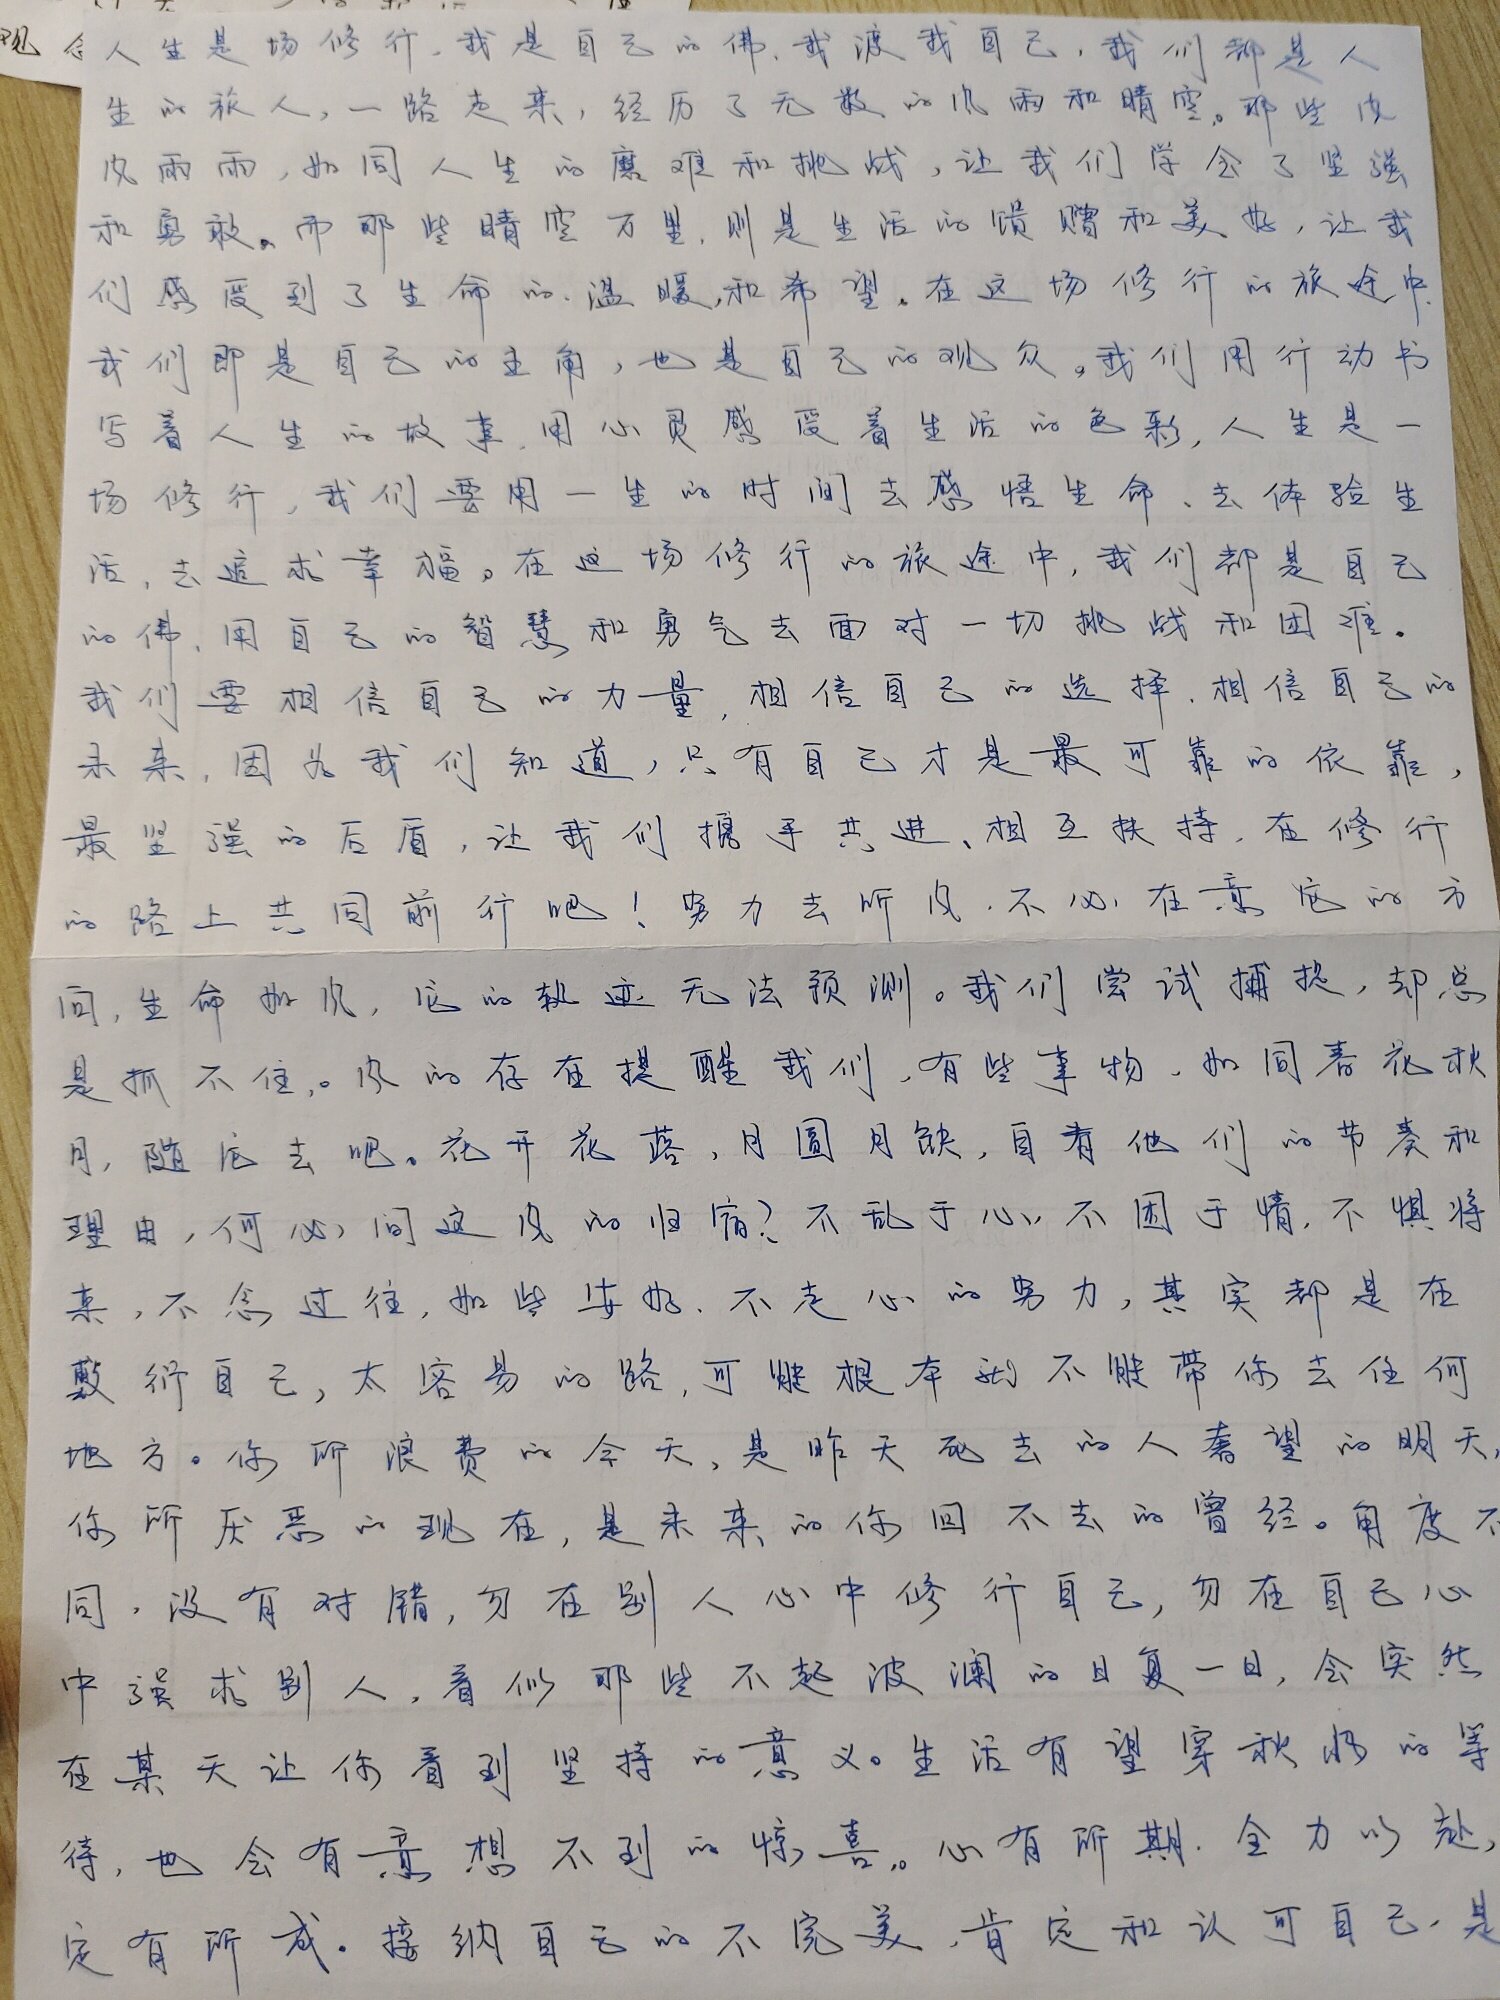 观念
人生是场修行，我是自己的佛，我渡我自己，我们都是人
生的旅人，一路走来，经历了无数的风雨和晴空。那些风
风雨雨，如同人生的磨难和挑战，让我们学会了坚强
和勇敢。而那些晴空万里，则是生活的馈赠和美好，让我
们感受到了生命的温暖，和希望。在这场修行的旅途中，
我们即是自己的主角，也是自己的观众。我们用行动书
写着人生的故事，用心灵感受着生活的色彩，人生是一
场修行，我们要用一生的时间去感悟生命、去体验生
活，去追求幸福。在这场修行的旅途中，我们都是自己
的佛，用自己的智慧和勇气去面对一切挑战和困难。
我们要相信自己的力量，相信自己的选择，相信自己的
未来，因为我们知道，只有自己才是最可靠的依靠，
最坚强的后盾，让我们携手共进、相互扶持，在修行
的路上共同前行吧！努力去听风，不必在意它的方
向，生命如风，它的轨迹无法预测。我们尝试捕捉，却总
是抓不住。风的存在提醒我们，有些事物，如同春花秋
月，随它去吧。花开花落，月圆月缺，自有他们的节奏和
理由，何必问这风的归宿？不乱于心，不困于情，不惧将
来，不念过往，如些安好，不走心的努力，其实都是在
敷衍自己，太容易的路，可能根本就不能带你去任何
地方。你所浪费的今天，是昨天死去的人奢望的明天，
你所厌恶的现在，是未来的你回不去的曾经。角度不
同，没有对错，勿在别人心中修行自己，勿在自己心
中强求别人，看似那些不起波澜的日复一日，会突然
在某天让你看到坚持的意义。生活有望穿秋水的等
待，也会有意想不到的惊喜。心有所期，全力以赴，
定有所成。接纳自己的不完美，肯定和认可自己，是